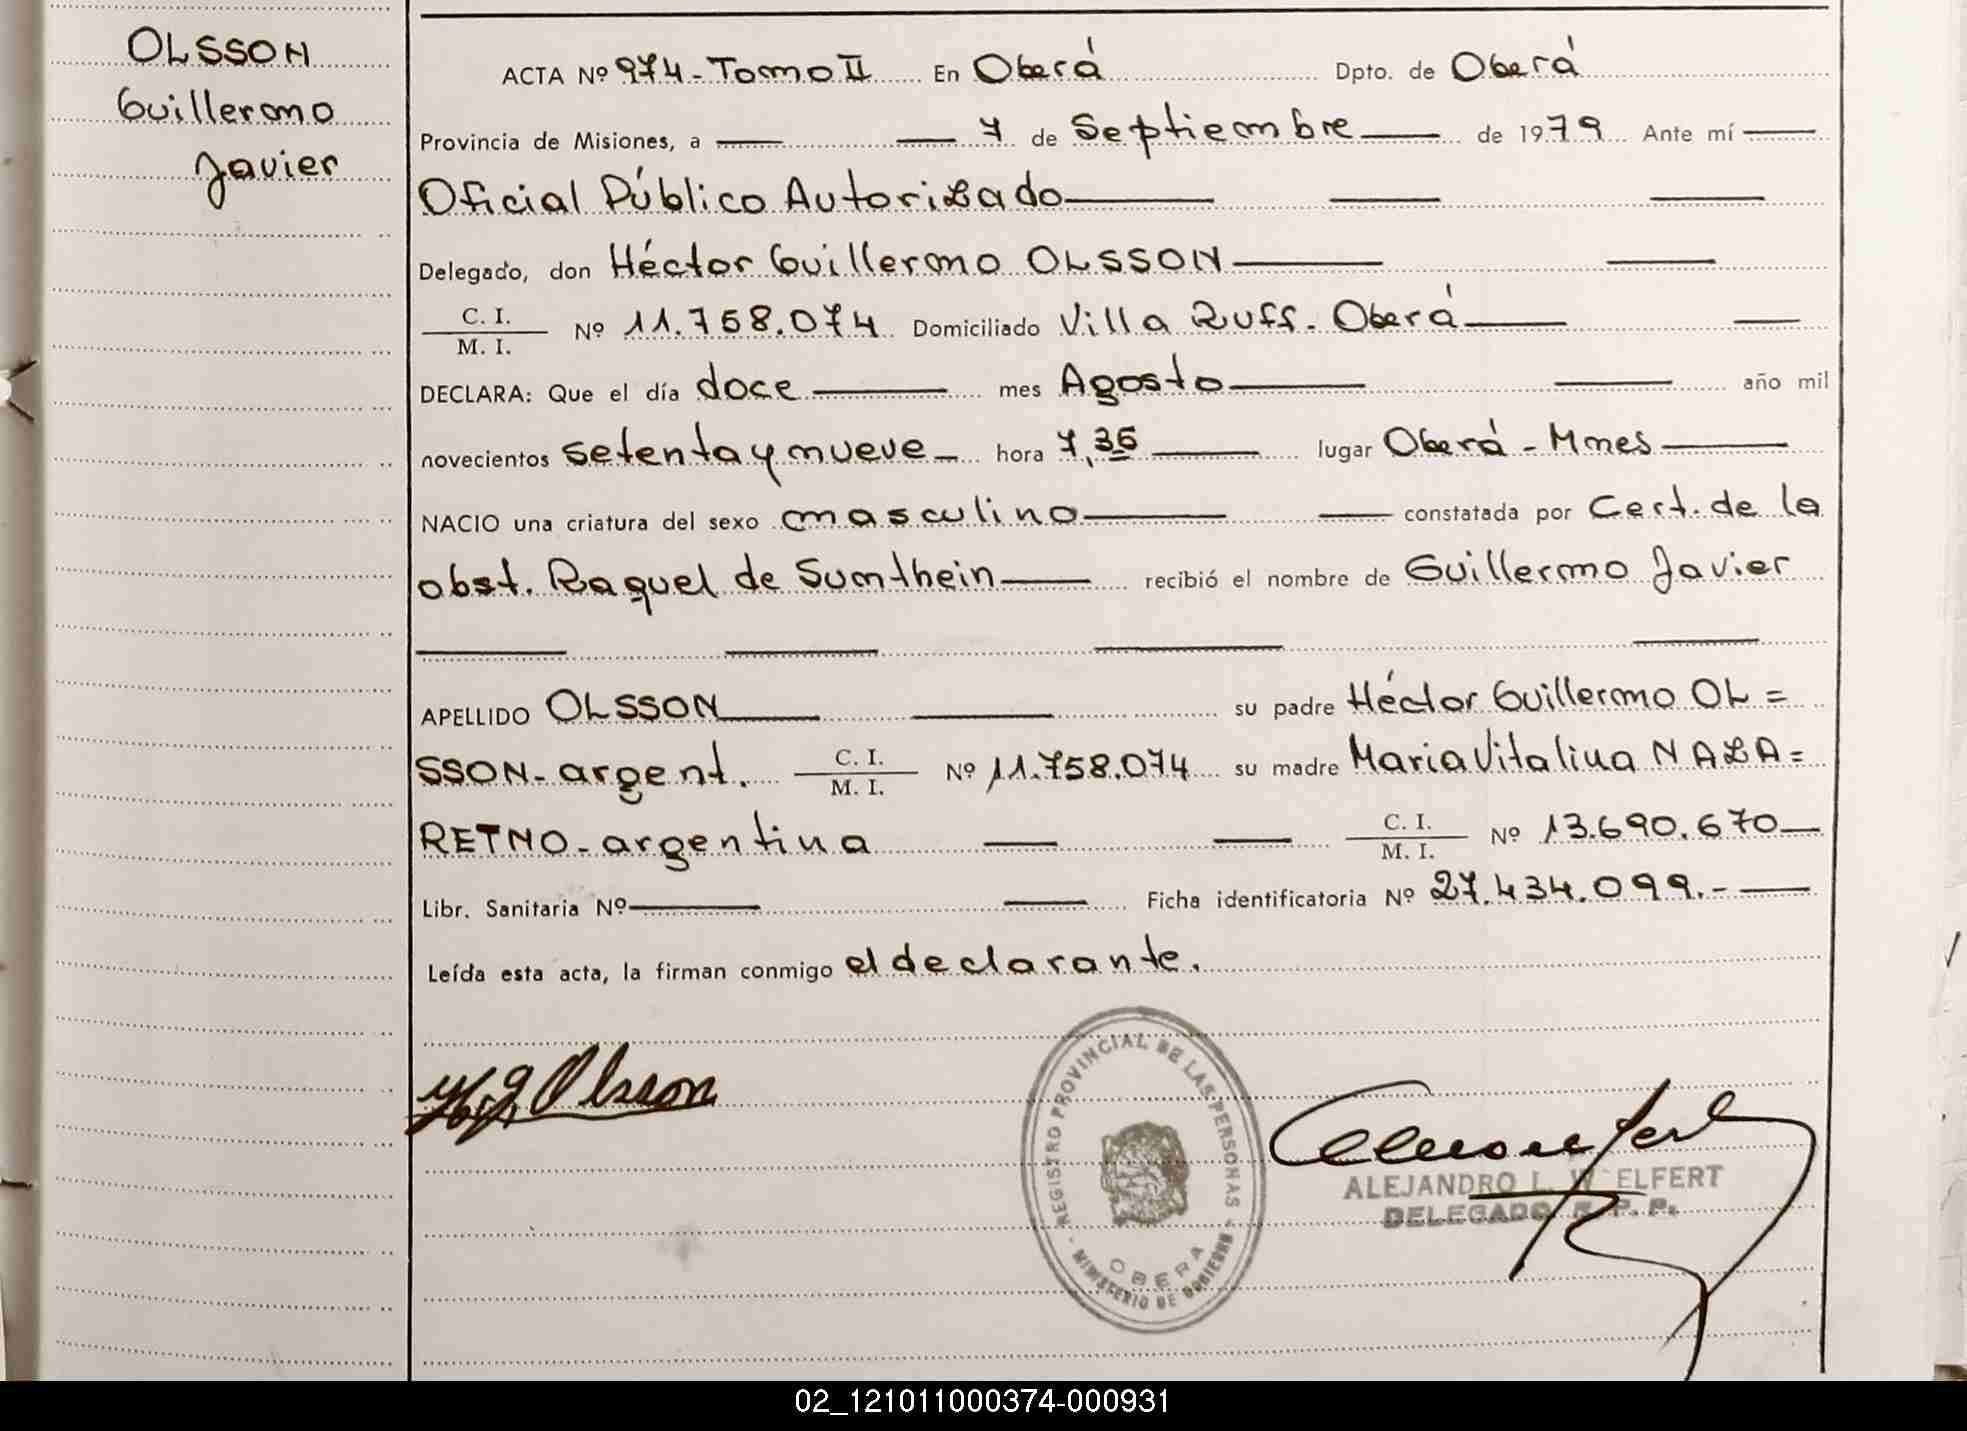 OLSSON
Guillermo
Javier
ACTA Nº 974 - Tomo II En Oberá Dpto. de Oberá
Provincia de Misiones, a 7 de Septiembre de 1979 Ante mí
Oficial Público Autorizado
Delegado, don Héctor Guillermo OLSSON
C. I.
M. I.
Nº 11.758.074 Domiciliado Villa Ruff. Oberá
DECLARA: Que el día doce mes Agosto año mil
novecientos setenta y nueve hora 7,35 lugar Oberá - Mnes
NACIO una criatura del sexo masculino constatada por Cert. de la
obst. Raquel de Sumthein recibió el nombre de Guillermo Javier
APELLIDO OLSSON su padre Héctor Guillermo OL=
SSON - argent. C. I. M. I. Nº 11.758.074 su madre Maria Vitalina NAZA=
RETNO - argentina C. I. M. I. Nº 13.690.670
Libr. Sanitaria Nº Ficha identificatoria Nº 27.434.099.-
Leída esta acta, la firman conmigo el declarante.
H.G. Olsson
REGISTRO PROVINCIAL DE LAS PERSONAS
MINISTERIO DE GOBIERNO
OBERA
ALEJANDRO L. WELFERT
DELEGADO R. P. P.
02_121011000374-000931